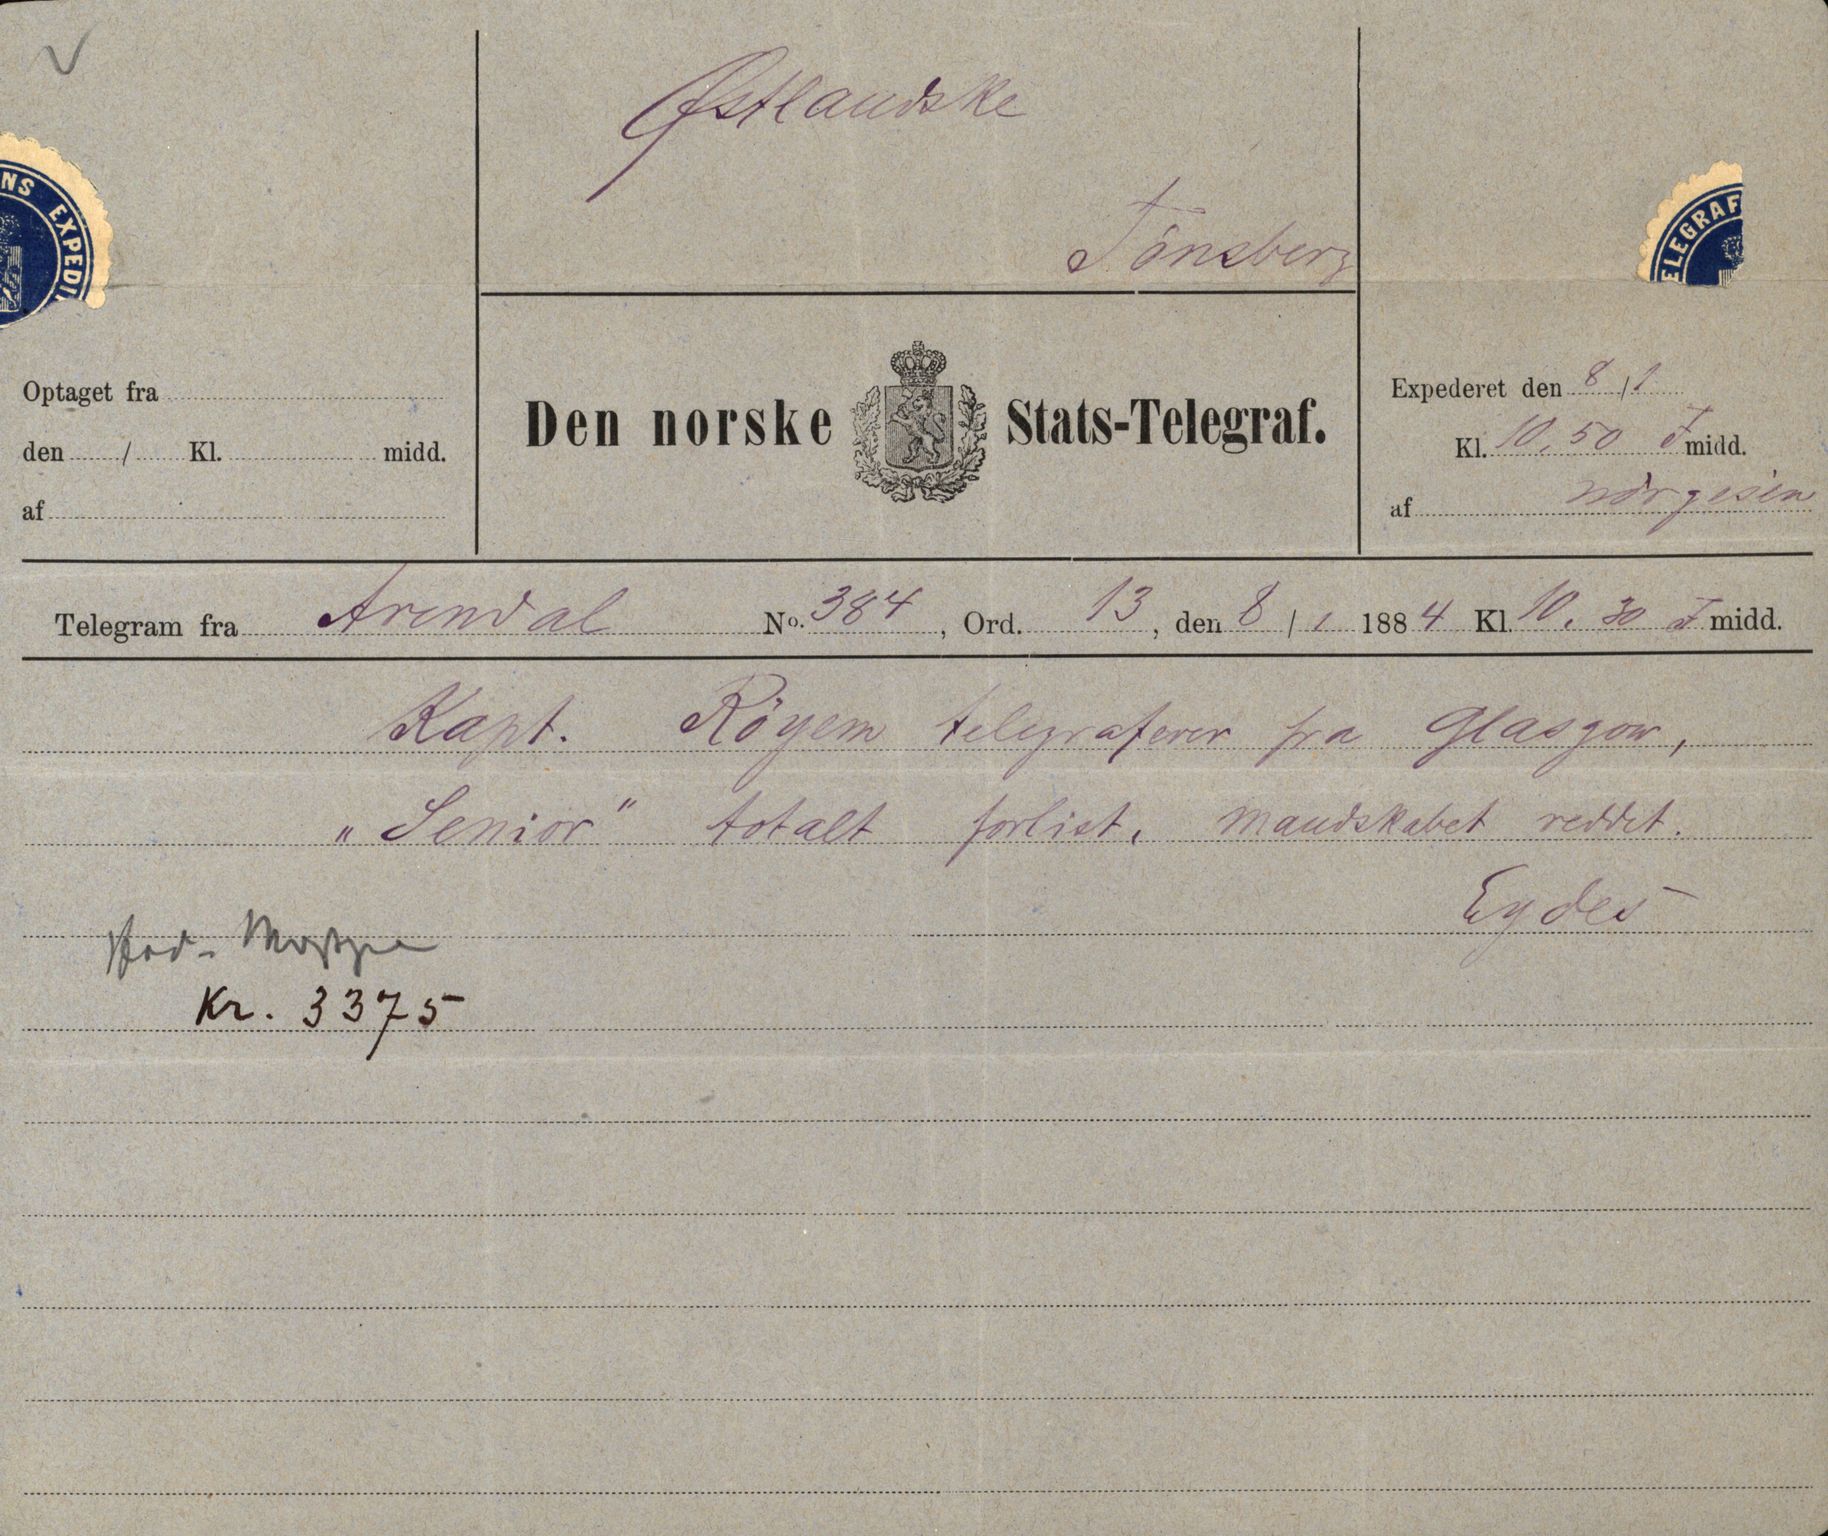 Østlandske
Tönsberg
NS EXPEDI
ELEGRAF
Optaget fra
den / Kl. midd.
af
Den norske Stats-Telegraf.
Expederet den 8/1
Kl. 10,50 F midd.
af
Telegram fra Arendal No. 384, Ord. 13, den 8/1 1884 Kl. 10,30 F midd.
Kapt. Röyem telegraferer fra Glasgow,
„Senior" totalt forlist, Mandskabet reddet.
Eydes
Kr. 3375